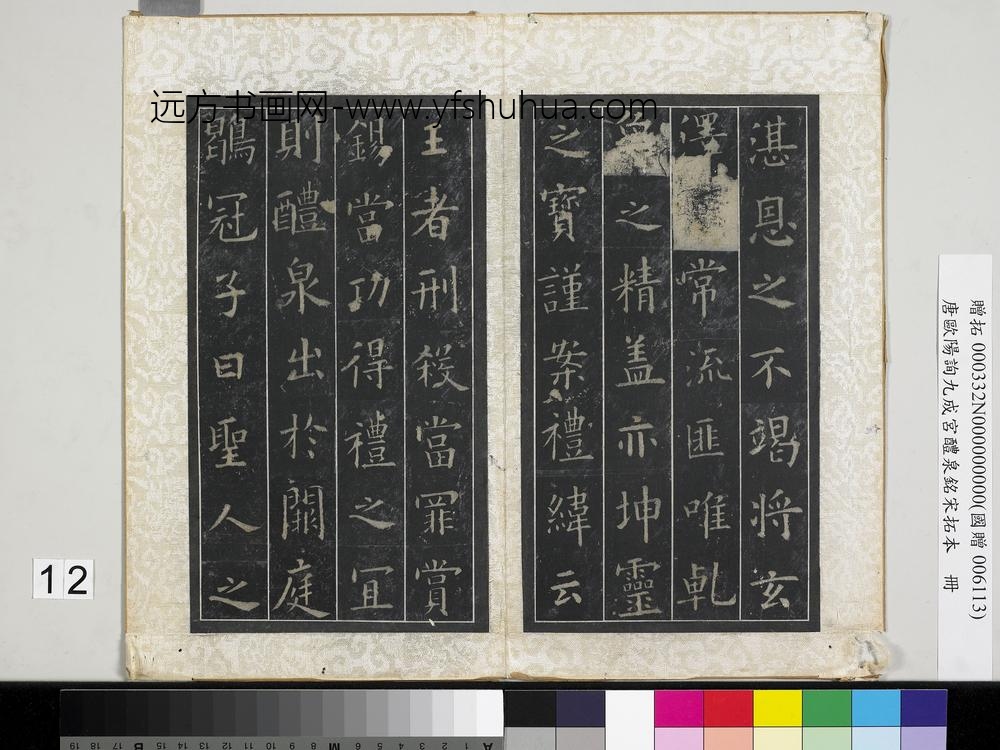 远方书画网-www.yfshuhua.com
湛恩之不竭将玄
澤常流匪唯乹
之精盖亦坤靈
之寶謹案禮緯云
王者刑殺當罪賞
錫當功得禮之宜
則醴泉出於闕庭
鶡冠子曰聖人之
12
贈拓 000332N000000000(國贈 006113)
唐歐陽詢九成宮醴泉銘宋拓本 冊